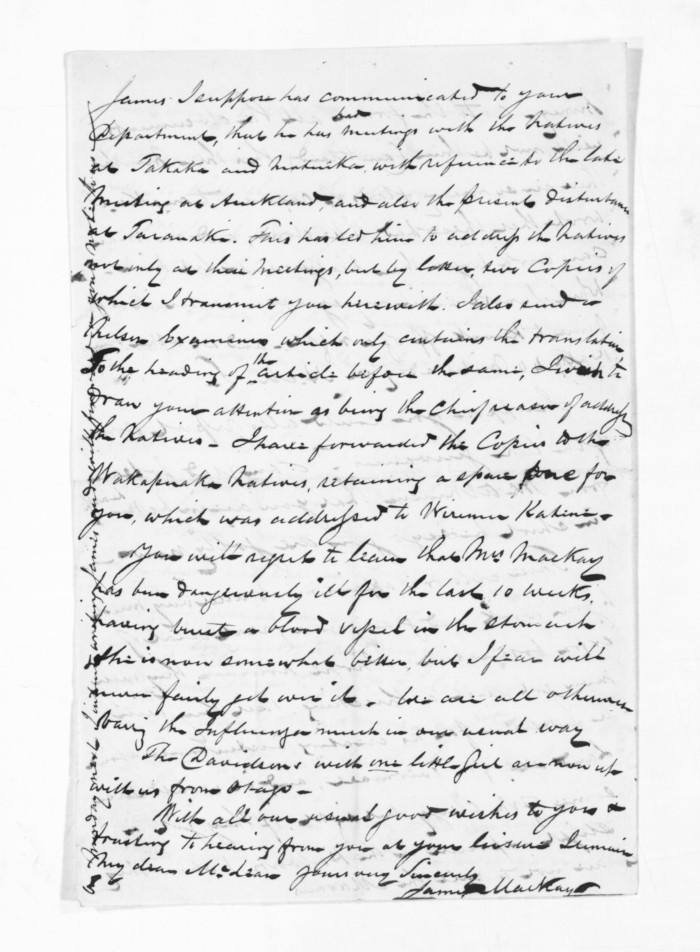 James I suppose has communicated to your
Department, that he has had meetings with the Natives
at Takaka and Motueka, with reference to the late
Meeting at Auckland, and also the present disturbance
at Taranaki. This has led him to address the Natives
not only at their Meetings, but by letter, two Copies of
which I transmit you herewith. I also send a
Nelson Examiner which only contains the translation
To the heading of the article before the same, I wish to
draw your attention as being the Chief reason of addressing
the Natives - I have forwarded the Copies to the
Wakapuaka Natives, retaining a spare one for
you, which was addressed to Wiremu Katene -
You will regret to learn that Mrs Mackay
has been dangerously ill for the last 10 weeks,
having burst a blood vessel in the stomach
She is now somewhat better, but I fear will
never fairly get over it - We are all otherwise
baring the Influenza much in our usual way
The Davidsons with one little Girl are now up
with us from Otago -
With all our usual good wishes to you &
trusting to hearing from you at your leisure I remain
My dear McLean yours very Sincerely
James Mackay